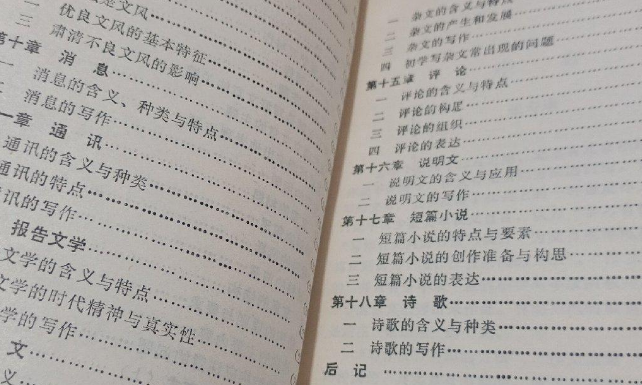 是文风
一 优良文风的基本特征
三 肃清不良文风的影响
第十章 消 息
一 消息的含义、种类与特点
二 消息的写作
一章 通 讯
通讯的含义与种类
通讯的特点
讯的写作
报告文学
文学的含义与特点
文学的时代精神与真实性
学的写作
文
义
一 杂文的含义与特点
二 杂文的产生和发展
三 杂文的写作
四 初学写杂文常出现的问题
第十五章 评 论
一 评论的含义与特点
二 评论的构思
三 评论的组织
四 评论的表达
第十六章 说明文
一 说明文的含义与应用
二 说明文的写作
第十七章 短篇小说
一 短篇小说的特点与要素
二 短篇小说的创作准备与构思
三 短篇小说的表达
第十八章 诗 歌
一 诗歌的含义与种类
二 诗歌的写作
后 记